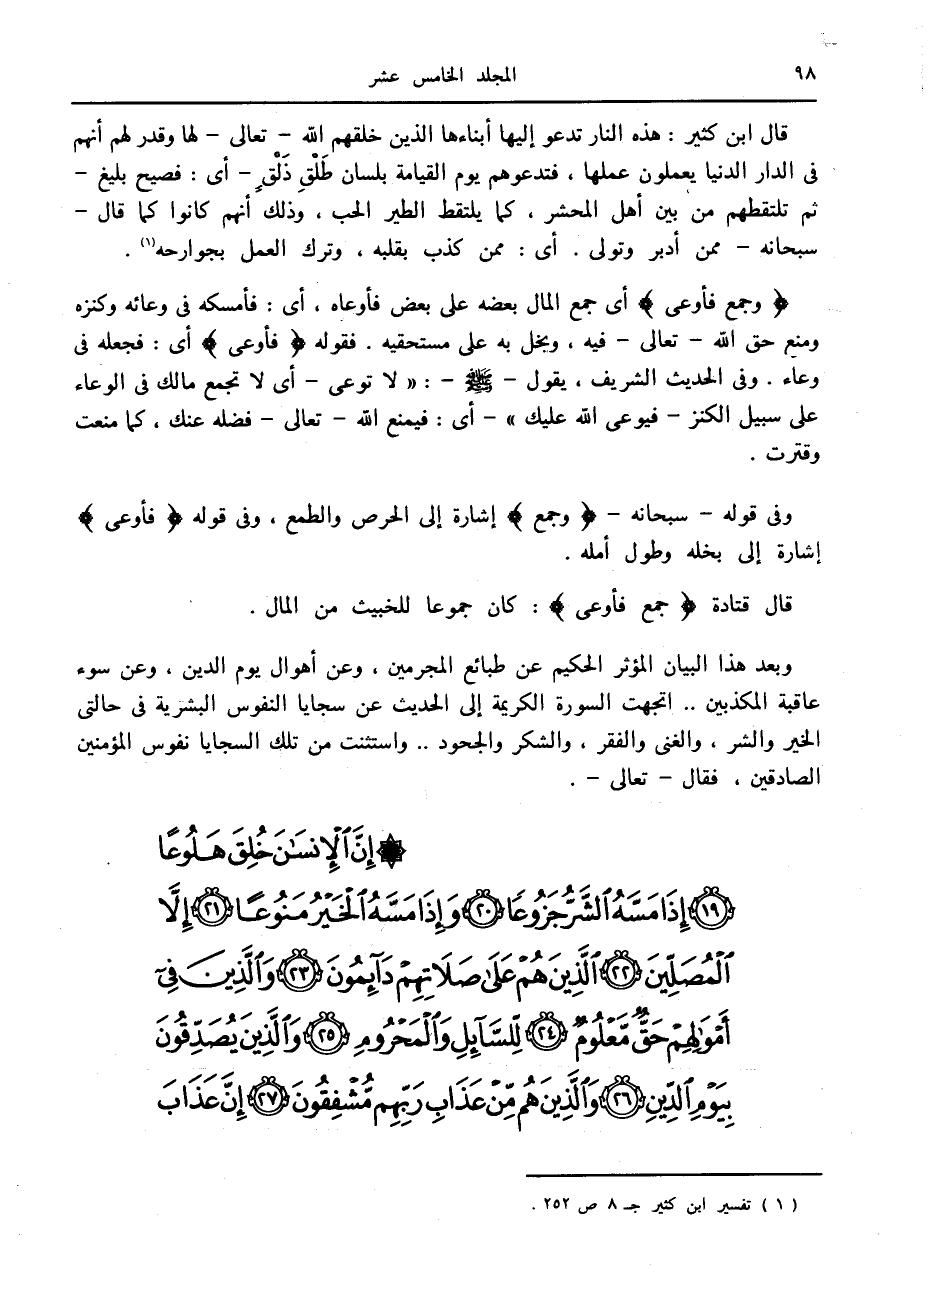 ٩٨ المجلد الخامس عشر
قال ابن كثير : هذه النار تدعو إليها أبناءها الذين خلقهم الله – تعالى – لها وقدر لهم أنهم
فى الدار الدنيا يعملون عملها ، فتدعوهم يوم القيامة بلسان طَلْقٍ ذَلْقٍ – أى : فصيح بليغ –
ثم تلتقطهم من بين أهل المحشر ، كما يلتقط الطير الحب ، وذلك أنهم كانوا كما قال –
سبحانه – ممن أدبر وتولى . أى : ممن كذب بقلبه ، وترك العمل بجوارحه(١) .
﴿ وجمع فأوعى ﴾ أى جمع المال بعضه على بعض فأوعاه ، أى : فأمسكه فى وعائه وكنزه
ومنع حق الله – تعالى – فيه ، وبخل به على مستحقيه . فقوله ﴿ فأوعى ﴾ أى : فجعله فى
وعاء . وفى الحديث الشريف ، يقول – ﷺ – : « لا توعى – أى لا تجمع مالك فى الوعاء
على سبيل الكنز – فيوعى الله عليك » – أى : فيمنع الله – تعالى – فضله عنك ، كما منعت
وقترت .
وفى قوله – سبحانه – ﴿ وجمع ﴾ إشارة إلى الحرص والطمع ، وفى قوله ﴿ فأوعى ﴾
إشارة إلى بخله وطول أمله .
قال قتادة ﴿ جمع فأوعى ﴾ : كان جموعا للخبيث من المال .
وبعد هذا البيان المؤثر الحكيم عن طبائع المجرمين ، وعن أهوال يوم الدين ، وعن سوء
عاقبة المكذبين .. اتجهت السورة الكريمة إلى الحديث عن سجايا النفوس البشرية فى حالتى
الخير والشر ، والغنى والفقر ، والشكر والجحود .. واستثنت من تلك السجايا نفوس المؤمنين
الصادقين ، فقال – تعالى – .
۞ إِنَّ ٱلْإِنسَٰنَ خُلِقَ هَلُوعًا
١٩ إِذَا مَسَّهُ ٱلشَّرُّ جَزُوعًا ٢٠ وَإِذَا مَسَّهُ ٱلْخَيْرُ مَنُوعًا ٢١ إِلَّا
ٱلْمُصَلِّينَ ٢٢ ٱلَّذِينَ هُمْ عَلَىٰ صَلَاتِهِمْ دَآئِمُونَ ٢٣ وَٱلَّذِينَ فِىٓ
أَمْوَٰلِهِمْ حَقٌّ مَّعْلُومٌ ٢٤ لِّلسَّآئِلِ وَٱلْمَحْرُومِ ٢٥ وَٱلَّذِينَ يُصَدِّقُونَ
بِيَوْمِ ٱلدِّينِ ٢٦ وَٱلَّذِينَ هُم مِّنْ عَذَابِ رَبِّهِم مُّشْفِقُونَ ٢٧ إِنَّ عَذَابَ
( ١ ) تفسير ابن كثير جـ ٨ ص ٢٥٢ .